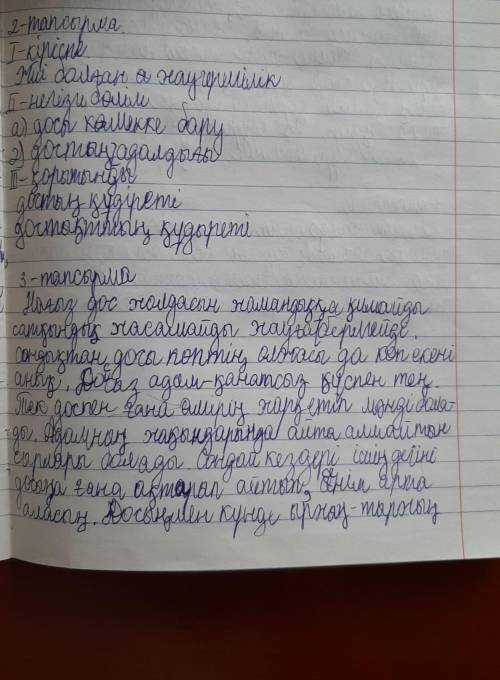 2-тапсырма
I-кіріспе
Жиі болған жаугершілік
II-негізгі бөлім
а) досы көмекке бару
2) достың адалдығы
III-қорытынды
достың құдіреті
достықтының құдыреті
3-тапсырма
Нағыз дос жолдасын жамандыққа қимайды
сатқындық жасамайды жауға бермейді.
сондықтан досы көптің олжасы да көп екені
анық. Досаз адам-қанатсыз құспен тең.
Тек доспен ғана өмірің жарқетіп мәнді бола-
ды. Адамның жақындарында айта алмайтын
сырлары болады. Сондай кездері ішіңдегіні
досыңа ғана ақтарап айтып, сенім арта
аласың. Досыңмен күнде ыржаң-тыржаң